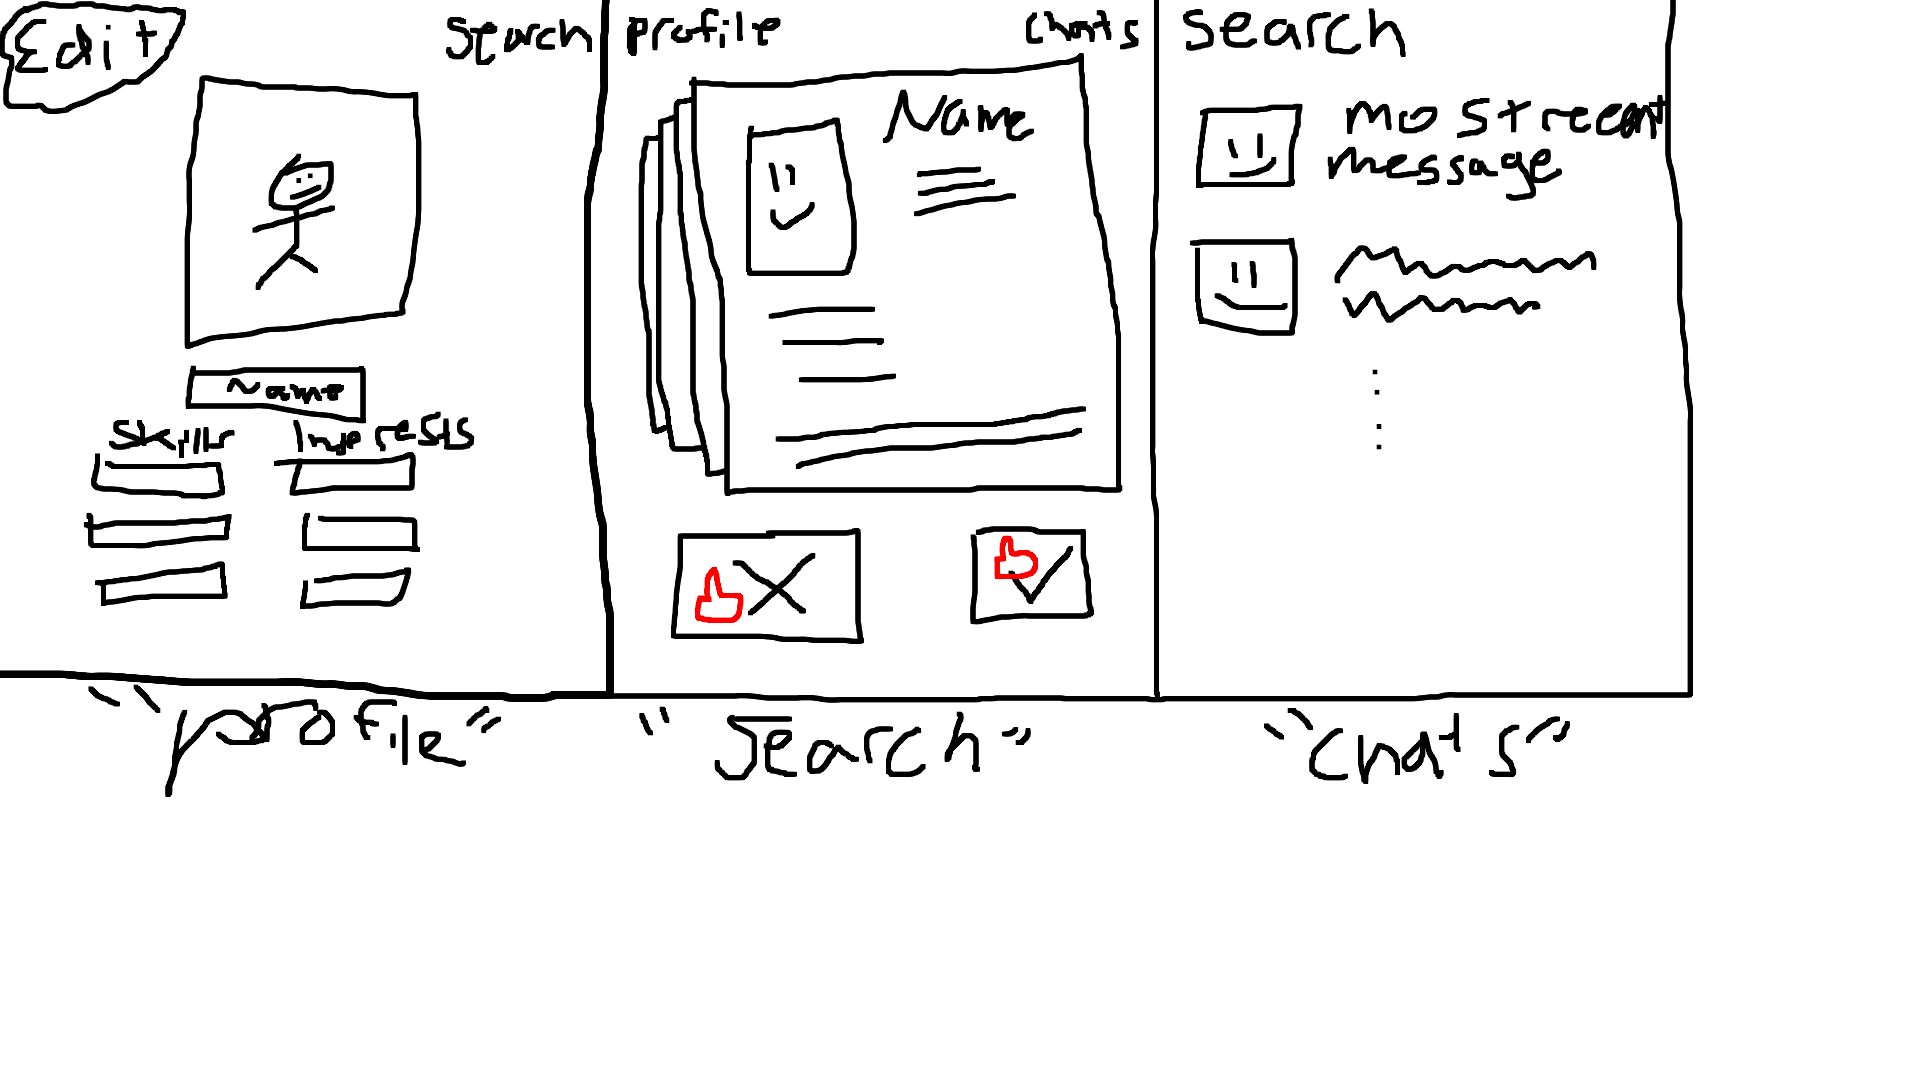 Edit
Search
Name
Skills
Interests
"profile"
profile
chats
Name
"Search"
Search
most recent
message
"chats"